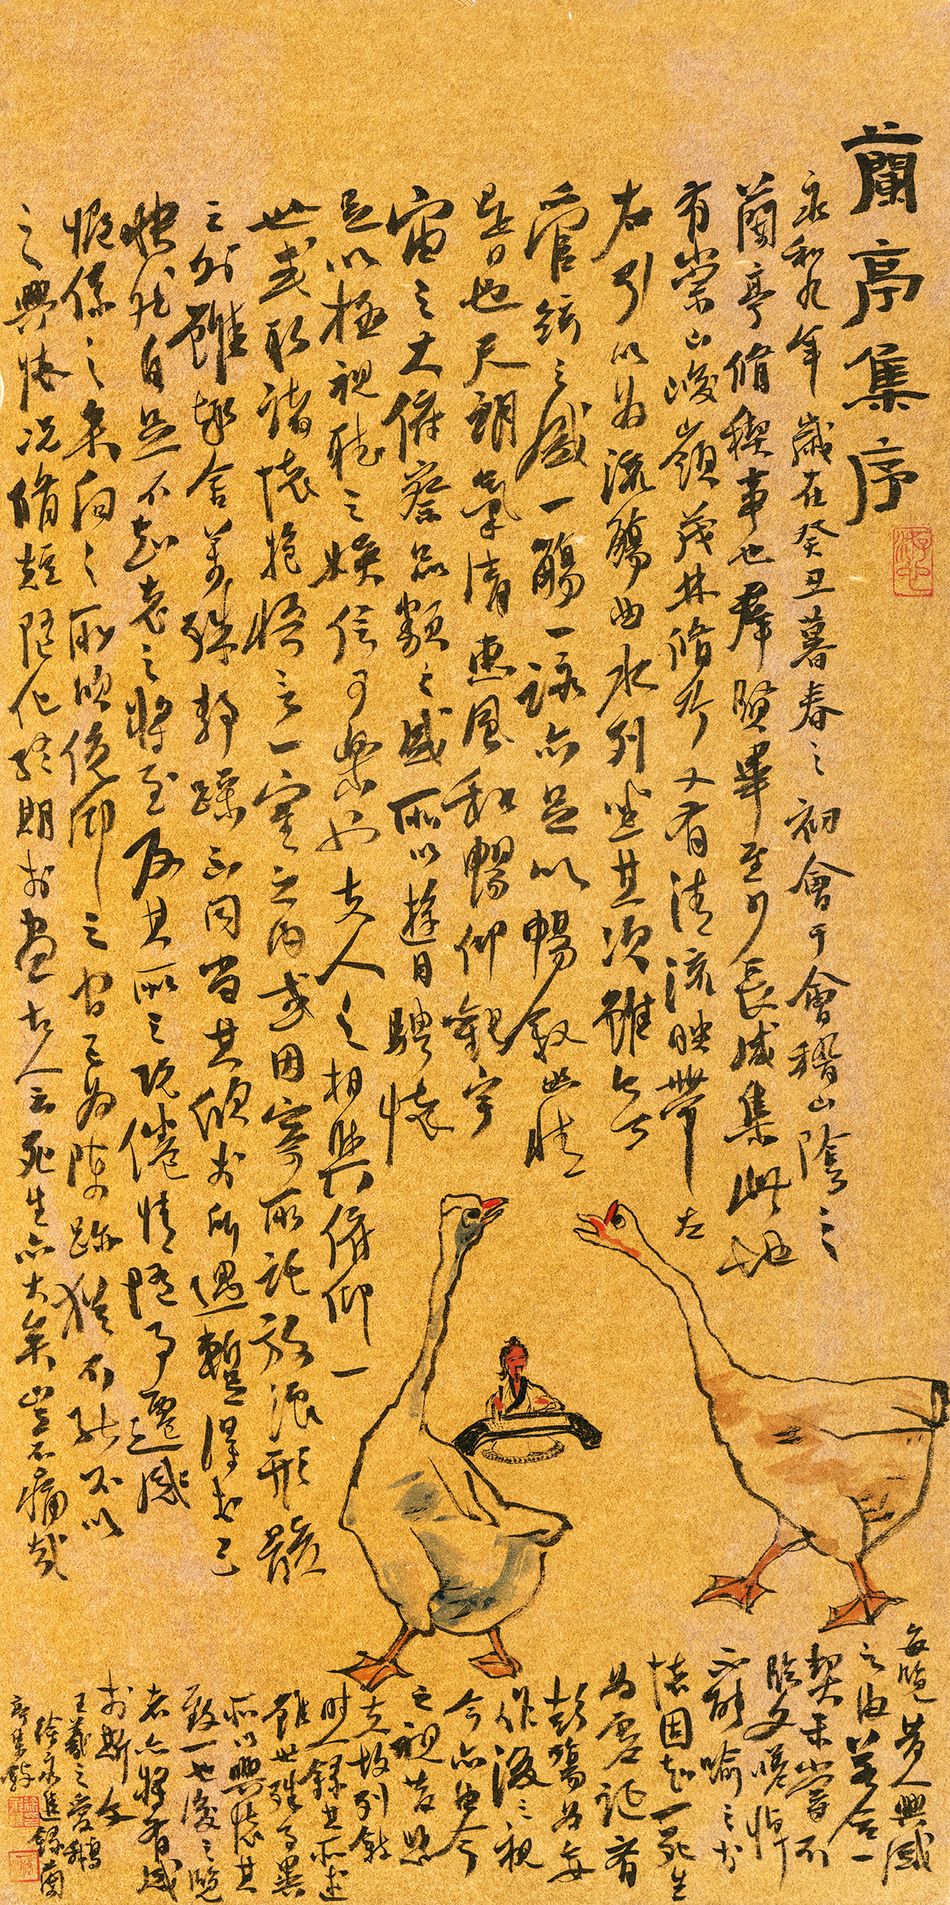 蘭亭集序
永和九年歲在癸丑暮春之初會于會稽山陰之
蘭亭脩稧事也羣賢畢至少長咸集此地
有崇山峻領茂林脩竹又有清流映帶左
右引以為流觴曲水列坐其次雖無
管絃之盛一觴一詠亦足以暢敘幽情
是日也天朗氣清惠風和暢仰觀宇
宙之大俯察品類之盛所以遊目騁懷
足以極視聽之娛信可樂也夫人之相與俯仰一
世或取諸懷抱悟言一室之內或因寄所託放浪形骸
之外雖趣舍萬殊靜躁不同當其欣於所遇暫得於己
快然自足不知老之將至及其所之既倦情隨事遷感
慨係之矣向之所欣俛仰之間已為陳跡猶不能不以
之興懷況脩短隨化終期於盡古人云死生亦大矣豈不痛哉
每覽昔人興感
之由若合一
契未嘗不
臨文嗟悼
不能喻之於
懷固知一死生
為虛誕齊
彭殤為妄
作後之視
今亦由今
之視昔悲
夫故列敘
時人錄其所述
雖世殊事異
所以興懷其
致一也後之覽
者亦將有感
於斯文
王羲之愛鵝
徐永進錄蘭
亭集敘